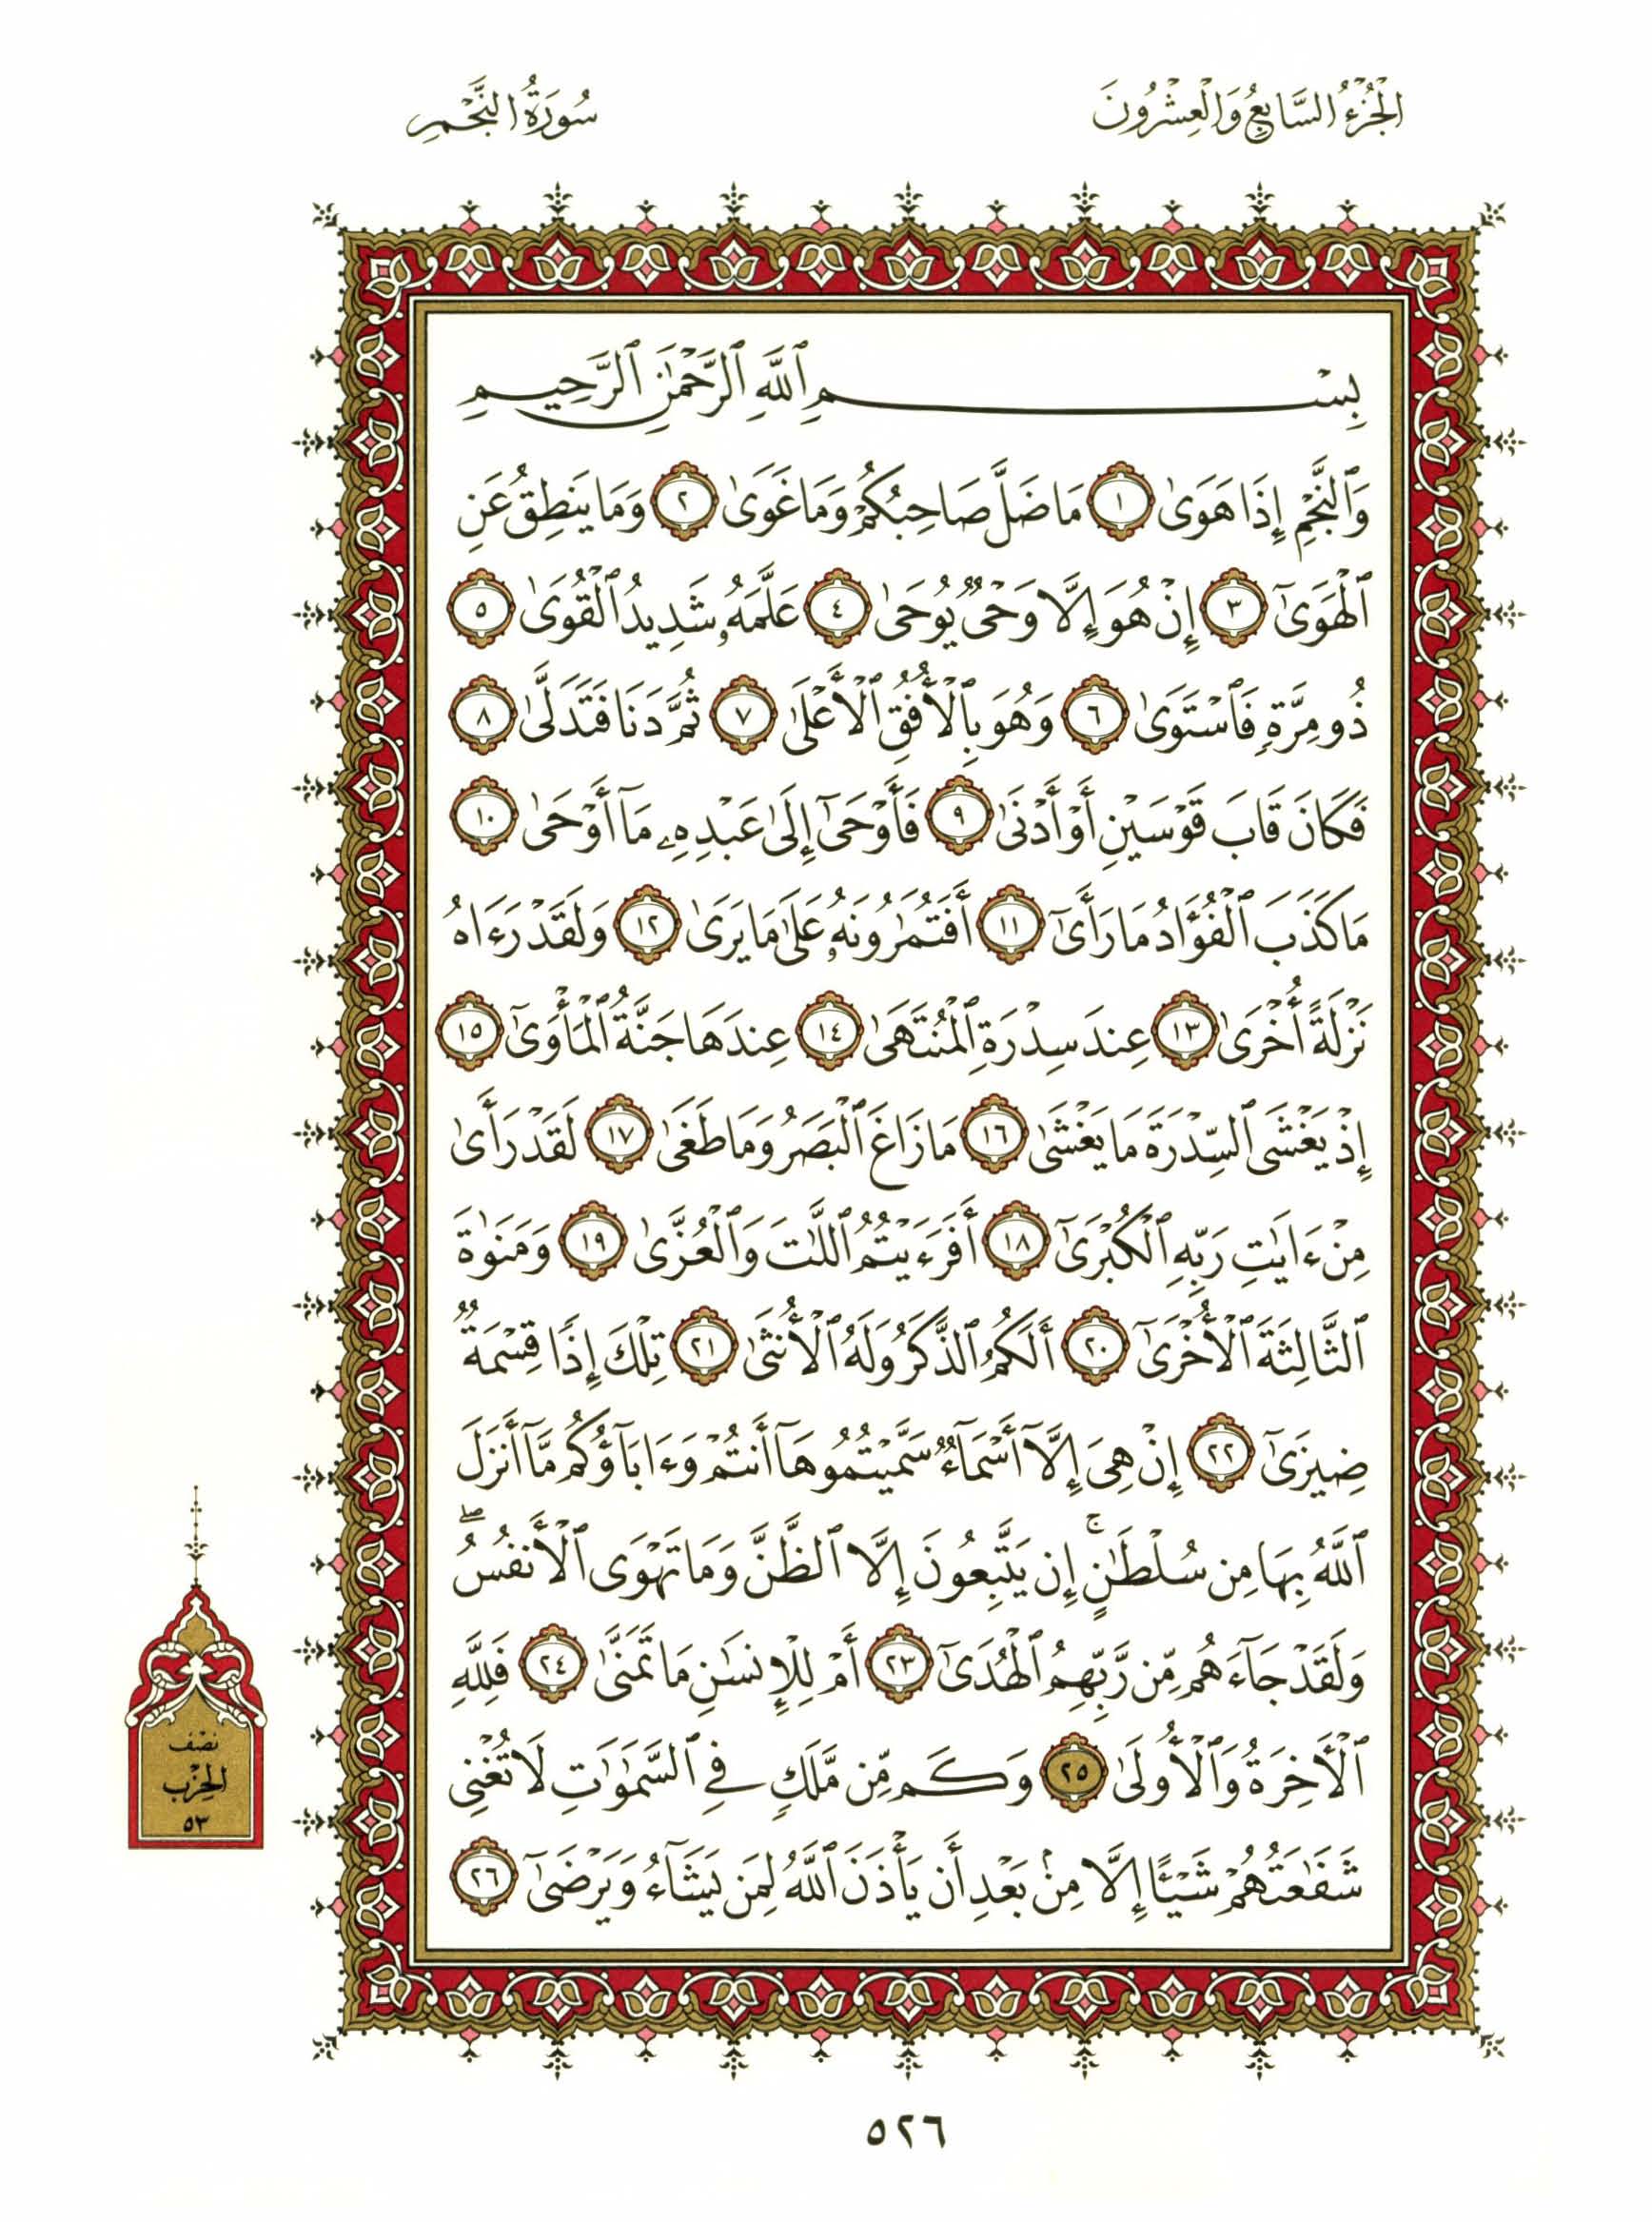 الجُزْءُ السَّابِعُ وَالْعِشْرُونَ
سُورَةُ النَّجْمِ
بِسْمِ ٱللَّهِ ٱلرَّحْمَٰنِ ٱلرَّحِيمِ
وَٱلنَّجْمِ إِذَا هَوَىٰ ١ مَا ضَلَّ صَاحِبُكُمْ وَمَا غَوَىٰ ٢ وَمَا يَنطِقُ عَنِ
ٱلْهَوَىٰٓ ٣ إِنْ هُوَ إِلَّا وَحْىٌ يُوحَىٰ ٤ عَلَّمَهُۥ شَدِيدُ ٱلْقُوَىٰ ٥
ذُو مِرَّةٍ فَٱسْتَوَىٰ ٦ وَهُوَ بِٱلْأُفُقِ ٱلْأَعْلَىٰ ٧ ثُمَّ دَنَا فَتَدَلَّىٰ ٨
فَكَانَ قَابَ قَوْسَيْنِ أَوْ أَدْنَىٰ ٩ فَأَوْحَىٰٓ إِلَىٰ عَبْدِهِۦ مَآ أَوْحَىٰ ١٠
مَا كَذَبَ ٱلْفُؤَادُ مَا رَأَىٰٓ ١١ أَفَتُمَٰرُونَهُۥ عَلَىٰ مَا يَرَىٰ ١٢ وَلَقَدْ رَءَاهُ
نَزْلَةً أُخْرَىٰ ١٣ عِندَ سِدْرَةِ ٱلْمُنتَهَىٰ ١٤ عِندَهَا جَنَّةُ ٱلْمَأْوَىٰٓ ١٥
إِذْ يَغْشَى ٱلسِّدْرَةَ مَا يَغْشَىٰ ١٦ مَا زَاغَ ٱلْبَصَرُ وَمَا طَغَىٰ ١٧ لَقَدْ رَأَىٰ
مِنْ ءَايَٰتِ رَبِّهِ ٱلْكُبْرَىٰٓ ١٨ أَفَرَءَيْتُمُ ٱللَّٰتَ وَٱلْعُزَّىٰ ١٩ وَمَنَوٰةَ
ٱلثَّالِثَةَ ٱلْأُخْرَىٰٓ ٢٠ أَلَكُمُ ٱلذَّكَرُ وَلَهُ ٱلْأُنثَىٰ ٢١ تِلْكَ إِذًا قِسْمَةٌ
ضِيزَىٰٓ ٢٢ إِنْ هِىَ إِلَّآ أَسْمَآءٌ سَمَّيْتُمُوهَآ أَنتُمْ وَءَابَآؤُكُم مَّآ أَنزَلَ
ٱللَّهُ بِهَا مِن سُلْطَٰنٍ ۚ إِن يَتَّبِعُونَ إِلَّا ٱلظَّنَّ وَمَا تَهْوَى ٱلْأَنفُسُ ۖ
وَلَقَدْ جَآءَهُم مِّن رَّبِّهِمُ ٱلْهُدَىٰٓ ٢٣ أَمْ لِلْإِنسَٰنِ مَا تَمَنَّىٰ ٢٤ فَلِلَّهِ
ٱلْأَخِرَةُ وَٱلْأُولَىٰ ٢٥ وَكَم مِّن مَّلَكٍ فِي ٱلسَّمَٰوَٰتِ لَا تُغْنِى
شَفَٰعَتُهُمْ شَيْـًٔا إِلَّا مِنۢ بَعْدِ أَن يَأْذَنَ ٱللَّهُ لِمَن يَشَآءُ وَيَرْضَىٰٓ ٢٦
نصْف
الحِزْب
٥٣
٥٢٦